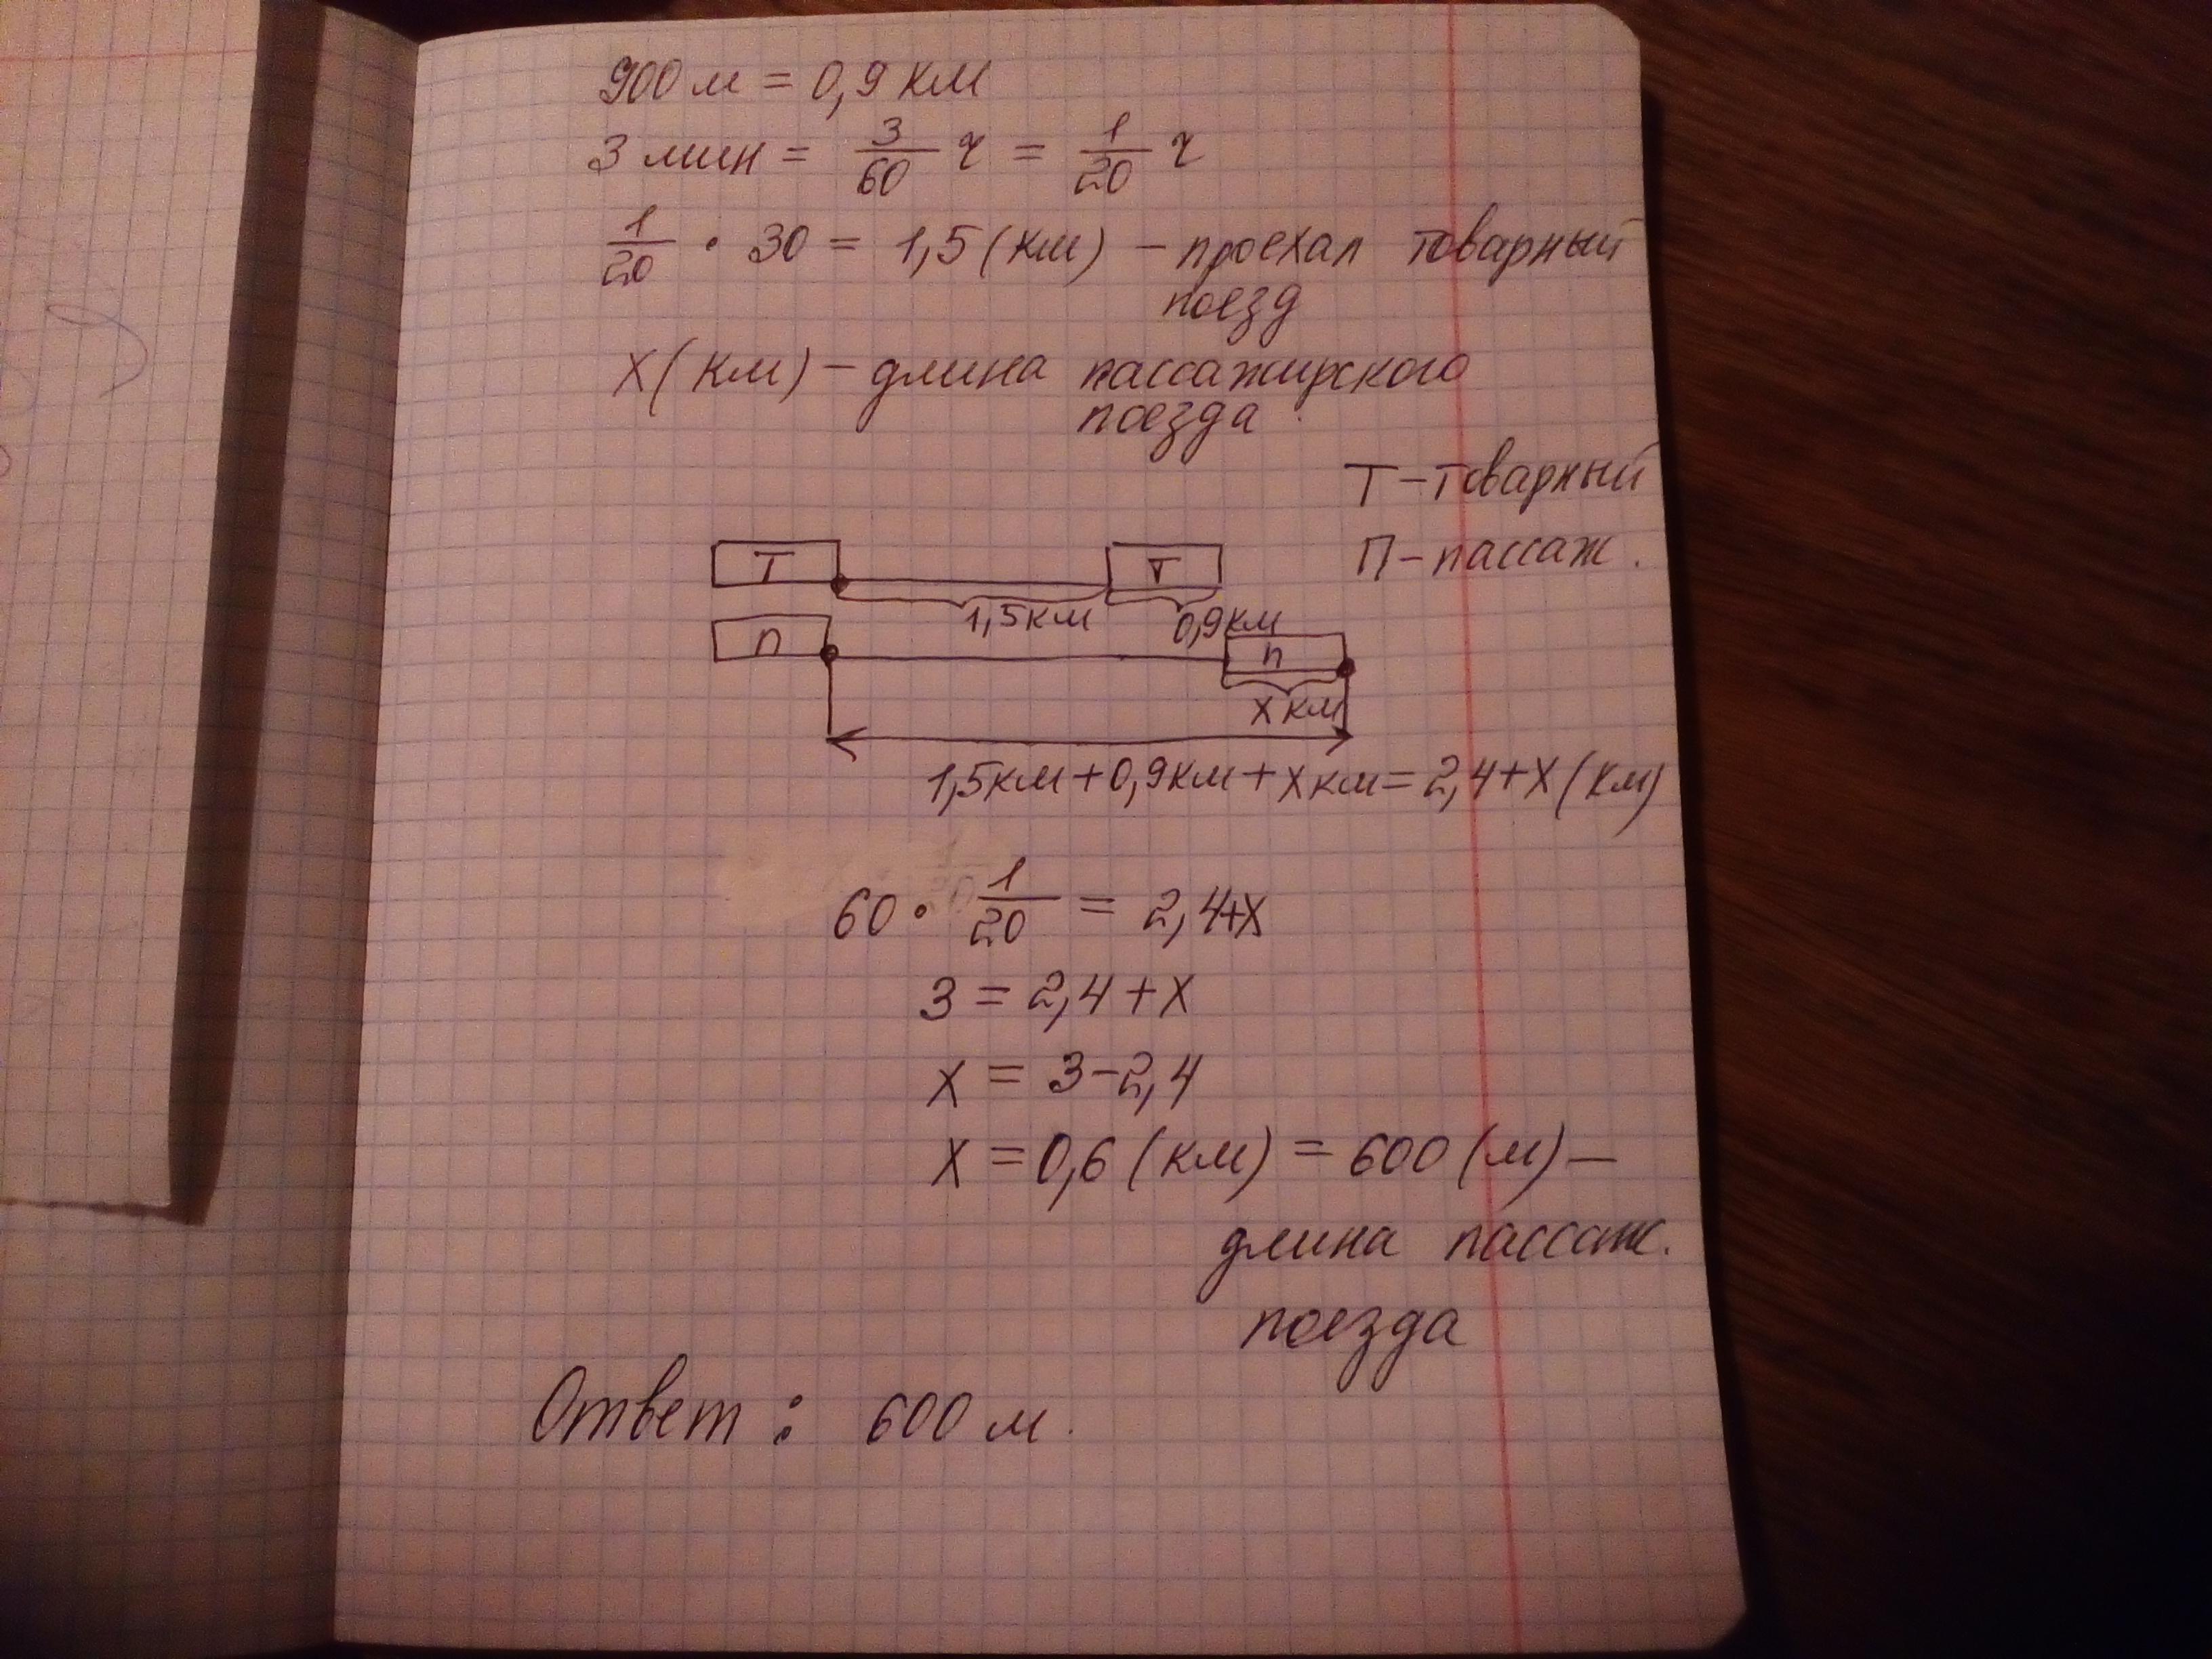 900 м = 0,9 км
3 мин = 3/60 ч = 1/20 ч
1/20 · 30 = 1,5 (км) – проехал товарный
поезд
х (км) – длина пассажирского
поезда
Т – товарный
П – пассаж.
Т Т
1,5 км 0,9 км
П П
х км
1,5 км + 0,9 км + х км = 2,4 + х (км)
60 · 1/20 = 2,4+х
3 = 2,4 + х
х = 3 – 2,4
х = 0,6 (км) = 600 (м) –
длина пассаж.
поезда
Ответ : 600 м.